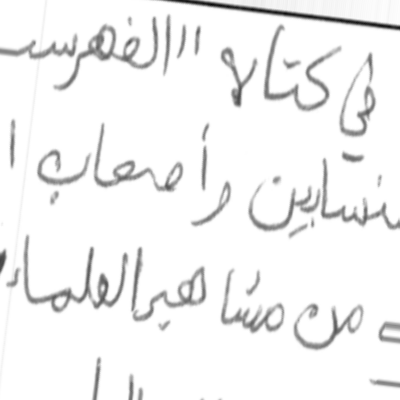 في كتابه "الفهرست
وأصحاب
من مشاهير العلماء